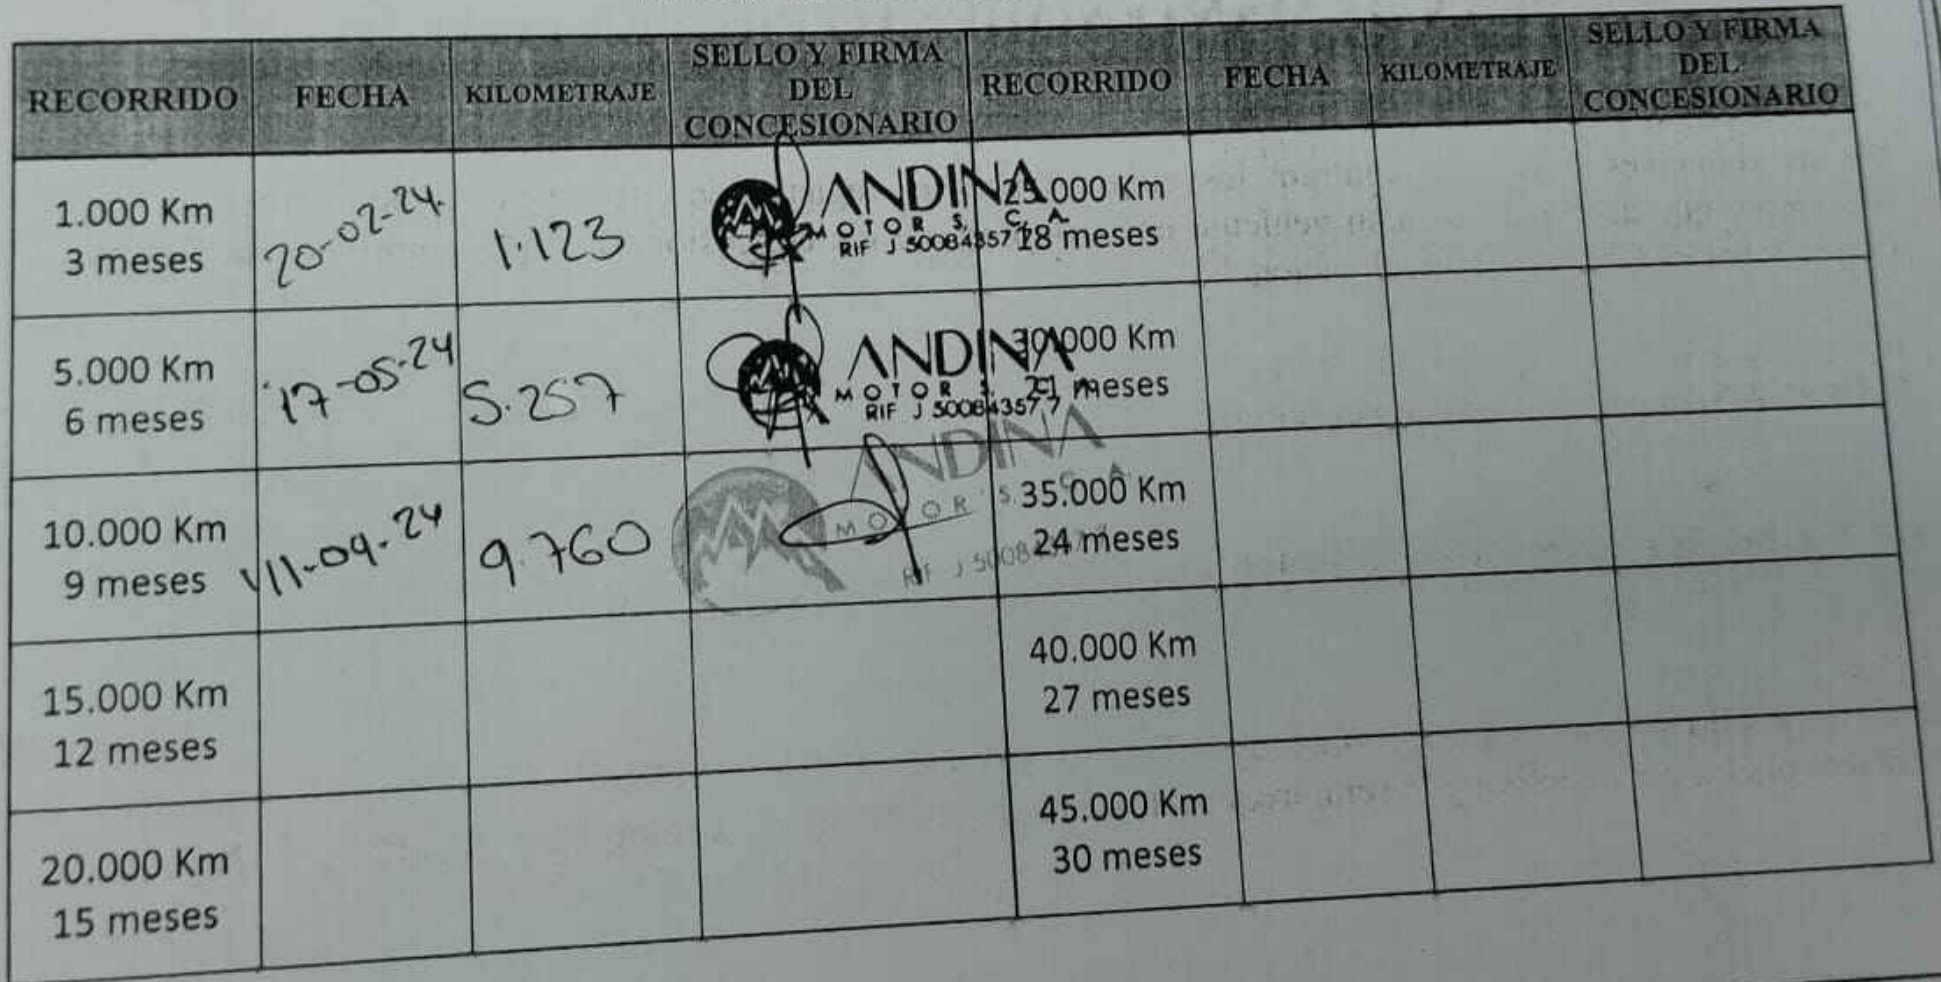 RECORRIDO FECHA KILOMETRAJE SELLO Y FIRMA DEL CONCESIONARIO RECORRIDO FECHA KILOMETRAJE SELLO Y FIRMA DEL CONCESIONARIO
1.000 Km
3 meses
20-02-24.
1.123
ANDINA
MOTOR S, C, A.
RIF J 500843577
25.000 Km
18 meses
5.000 Km
6 meses
17-05-24
5.257
ANDINA
MOTOR S, C, A.
RIF J 500843577
30.000 Km
21 meses
10.000 Km
9 meses
11-09-24
9.760
ANDINA
MOTOR S. C. A.
RIF J 5008
35.000 Km
24 meses
15.000 Km
12 meses
40.000 Km
27 meses
20.000 Km
15 meses
45.000 Km
30 meses